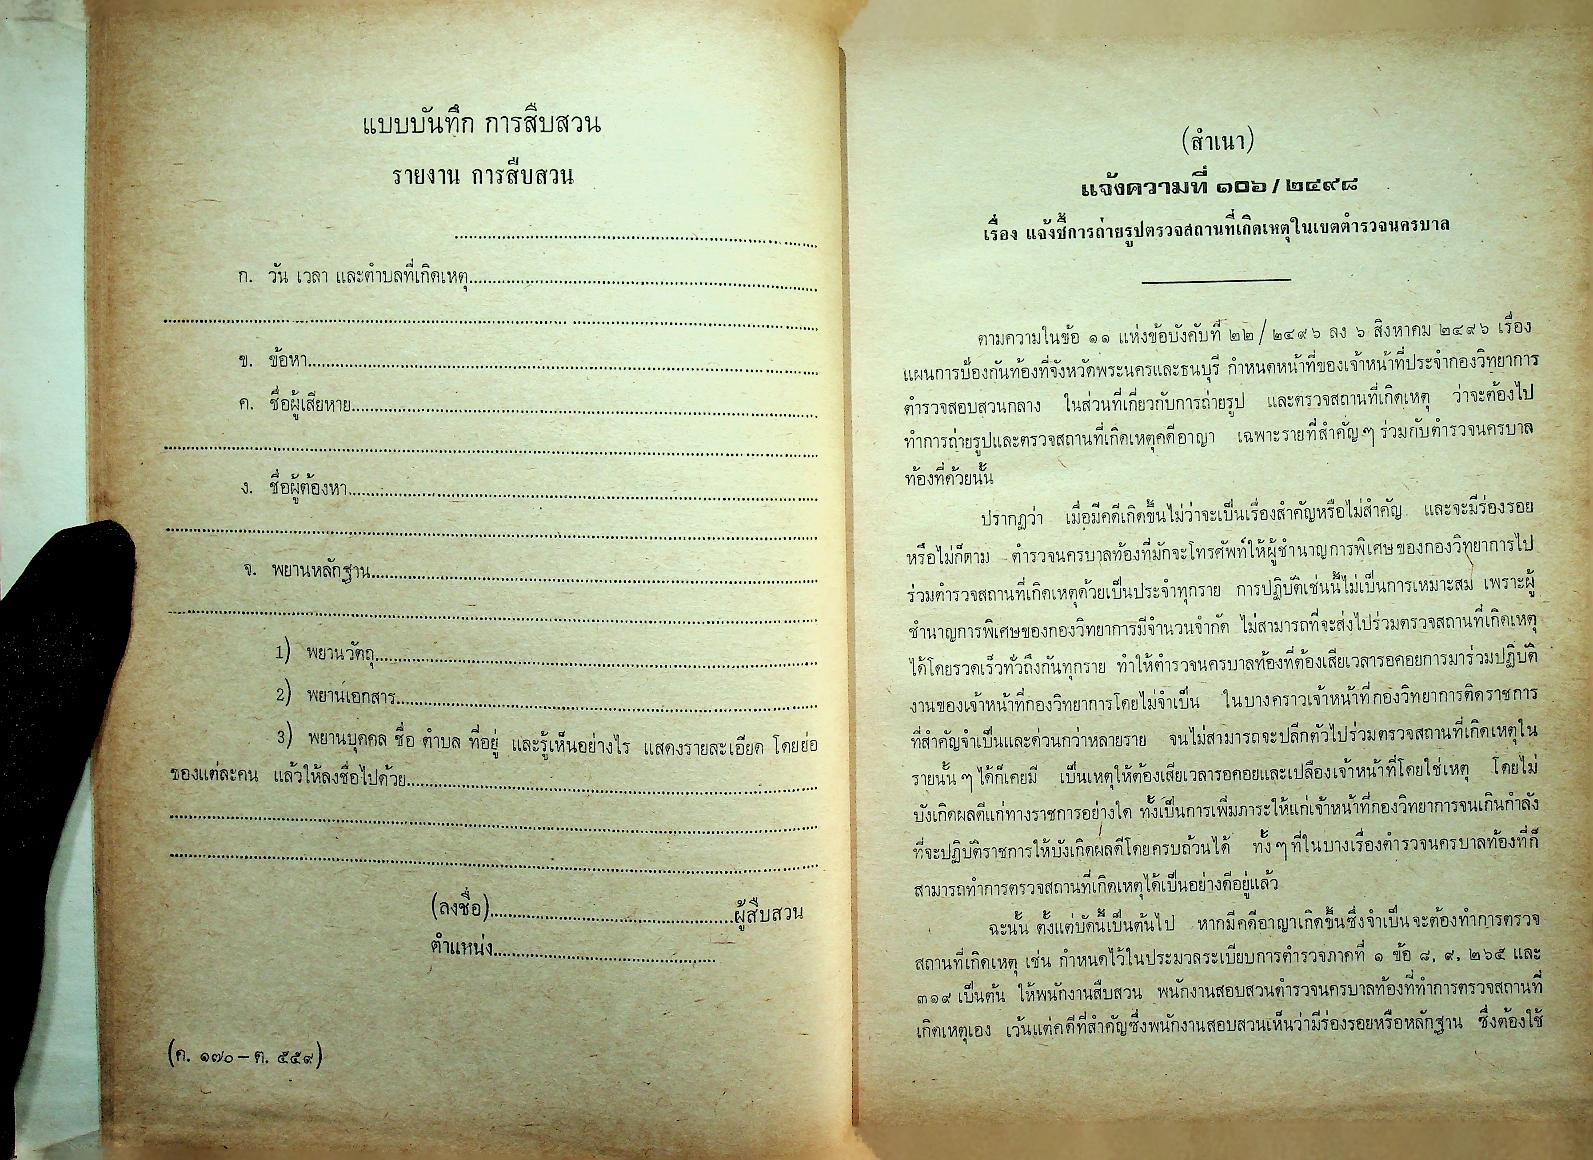 แบบบันทึก การสืบสวน
รายงาน การสืบสวน
ก. วัน เวลา และตำบลที่เกิดเหตุ
ข. ข้อหา
ค. ชื่อผู้เสียหาย
ง. ชื่อผู้ต้องหา
จ. พยานหลักฐาน
1) พยานวัตถุ
2) พยานเอกสาร
3) พยานบุคคล ชื่อ ตำบล ที่อยู่ และรู้เห็นอย่างไร แสดงรายละเอียด โดยย่อ
ของแต่ละคน แล้วให้ลงชื่อไปด้วย
(ลงชื่อ)....................ผู้สืบสวน
ตำแหน่ง
(ค. ๑๗๐ – ต. ๕๕๙)
(สำเนา)
แจ้งความที่ ๑๐๖ / ๒๔๙๘
เรื่อง แจ้งชี้การถ่ายรูปตรวจสถานที่เกิดเหตุในเขตตำรวจนครบาล
ตามความในข้อ ๑๑ แห่งข้อบังคับที่ ๒๒ / ๒๔๙๖ ลง ๖ สิงหาคม ๒๔๙๖ เรื่อง
แผนการป้องกันท้องที่จังหวัดพระนครและธนบุรี กำหนดหน้าที่ของเจ้าหน้าที่ประจำกองวิทยาการ
ตำรวจสอบสวนกลาง ในส่วนที่เกี่ยวกับการถ่ายรูป และตรวจสถานที่เกิดเหตุ ว่าจะต้องไป
ทำการถ่ายรูปและตรวจสถานที่เกิดเหตุคดีอาญา เฉพาะรายที่สำคัญ ๆ ร่วมกับตำรวจนครบาล
ท้องที่ด้วยนั้น
ปรากฏว่า เมื่อมีคดีเกิดขึ้นไม่ว่าจะเป็นเรื่องสำคัญหรือไม่สำคัญ และจะมีร่องรอย
หรือไม่ก็ตาม ตำรวจนครบาลท้องที่มักจะโทรศัพท์ให้ผู้ชำนาญการพิเศษของกองวิทยาการไป
ร่วมตรวจสถานที่เกิดเหตุด้วยเป็นประจำทุกราย การปฏิบัติเช่นนี้ไม่เป็นการเหมาะสม เพราะผู้
ชำนาญการพิเศษของกองวิทยาการมีจำนวนจำกัด ไม่สามารถที่จะส่งไปร่วมตรวจสถานที่เกิดเหตุ
ได้โดยรวดเร็วทั่วถึงกันทุกราย ทำให้ตำรวจนครบาลท้องที่ต้องเสียเวลารอคอยการมาร่วมปฏิบัติ
งานของเจ้าหน้าที่กองวิทยาการโดยไม่จำเป็น ในบางคราวเจ้าหน้าที่กองวิทยาการติดราชการ
ที่สำคัญจำเป็นและด่วนกว่าหลายราย จนไม่สามารถจะปลีกตัวไปร่วมตรวจสถานที่เกิดเหตุใน
รายนั้น ๆ ได้ก็เคยมี เป็นเหตุให้ต้องเสียเวลารอคอยและเปลืองเจ้าหน้าที่โดยใช่เหตุ โดยไม่
บังเกิดผลดีแก่ทางราชการอย่างใด ทั้งเป็นการเพิ่มภาระให้แก่เจ้าหน้าที่กองวิทยาการจนเกินกำลัง
ที่จะปฏิบัติราชการให้บังเกิดผลดีโดยครบถ้วนได้ ทั้ง ๆ ที่ในบางเรื่องตำรวจนครบาลท้องที่ก็
สามารถทำการตรวจสถานที่เกิดเหตุได้เป็นอย่างดีอยู่แล้ว
ฉะนั้น ตั้งแต่บัดนี้เป็นต้นไป หากมีคดีอาญาเกิดขึ้นซึ่งจำเป็นจะต้องทำการตรวจ
สถานที่เกิดเหตุ เช่น กำหนดไว้ในประมวลระเบียบการตำรวจภาคที่ ๑ ข้อ ๘, ๙, ๒๖๕ และ
๓๑๙ เป็นต้น ให้พนักงานสืบสวน พนักงานสอบสวนตำรวจนครบาลท้องที่ทำการตรวจสถานที่
เกิดเหตุเอง เว้นแต่คดีที่สำคัญซึ่งพนักงานสอบสวนเห็นว่ามีร่องรอยหรือหลักฐาน ซึ่งต้องใช้